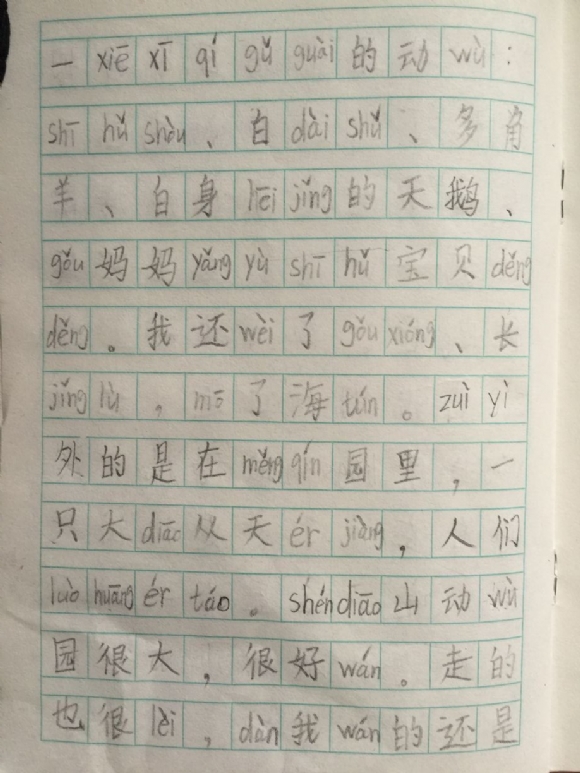 一xiē xī qí gǔ guài的动wù：
shī hǔ shòu、白dài shǔ、多角
羊、白身 liēi jǐng的天鹅、
gǒu妈妈yǎng yù shī hǔ宝贝děng
děng。我还wèi了gǒu xióng、长
jǐng lù，mō了海tún。zuì yì
外的是在měng qín园里，一
只大diāo从天ér jiàng，人们
luò huāng ér táo。shén diāo山动wù
园很大，很好wán。走的
也很lèi，dàn我wán的还是